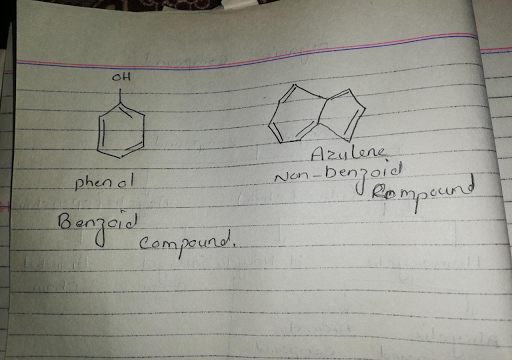 OH
phenol
Benzoid
compound.
Azulene
Non-benzoid
Compound